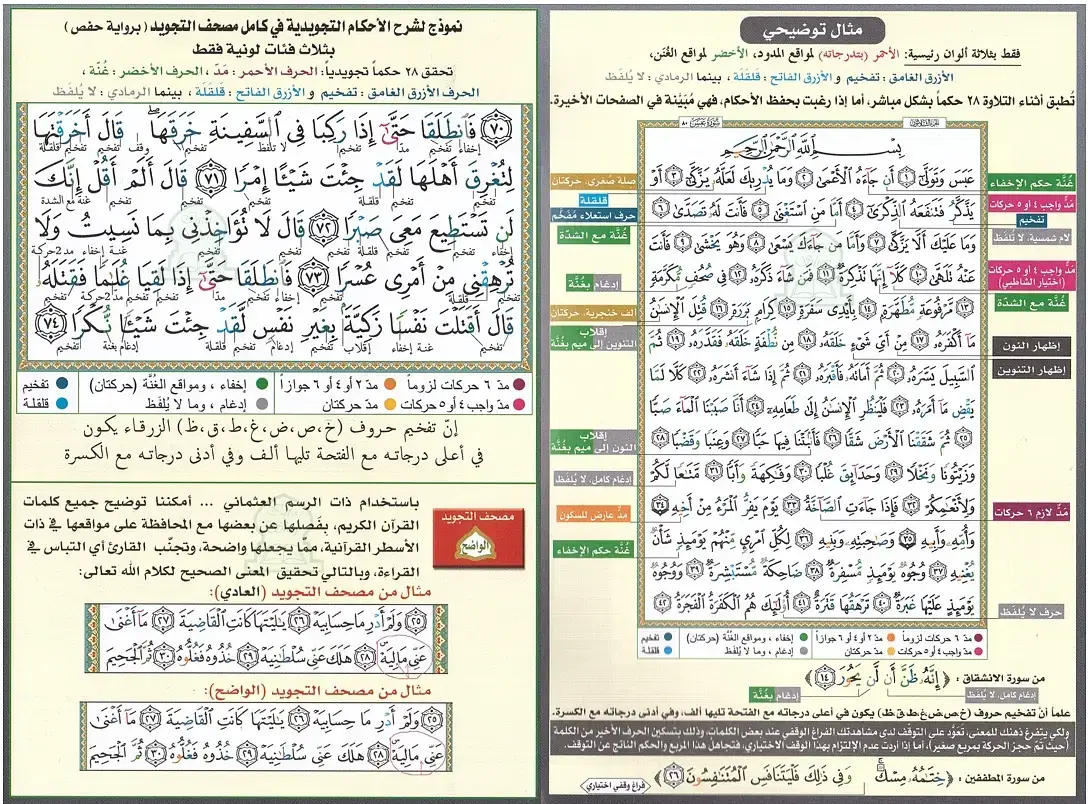 مثال توضيحي
فقط بثلاثة ألوان رئيسية: الأحمر (بتدرجاته) لمواقع المدود، الأخضر لمواقع الغُنَن،
الأزرق الغامق: تفخيم و الأزرق الفاتح: قلقلة، بينما الرمادي: لا يُلفَظ
تُطبق أثناء التلاوة ٢٨ حكماً بشكل مباشر، أما إذا رغبت بحفظ الأحكام، فهي مُبَيّنة في الصفحات الأخيرة.
سُورَةُ عَبَسَ ٨٠
بِسْمِ اللَّهِ الرَّحْمَٰنِ الرَّحِيمِ
عَبَسَ وَتَوَلَّىٰٓ ١ أَن جَآءَهُ ٱلْأَعْمَىٰ ٢ وَمَا يُدْرِيكَ لَعَلَّهُۥ يَزَّكَّىٰٓ ٣ أَوْ
يَذَّكَّرُ فَتَنفَعَهُ ٱلذِّكْرَىٰٓ ٤ أَمَّا مَنِ ٱسْتَغْنَىٰ ٥ فَأَنتَ لَهُۥ تَصَدَّىٰ ٦
وَمَا عَلَيْكَ أَلَّا يَزَّكَّىٰ ٧ وَأَمَّا مَن جَآءَكَ يَسْعَىٰ ٨ وَهُوَ يَخْشَىٰ ٩ فَأَنتَ
عَنْهُ تَلَهَّىٰ ١٠ كَلَّآ إِنَّهَا تَذْكِرَةٌ ١١ فَمَن شَآءَ ذَكَرَهُۥ ١٢ فِى صُحُفٍ مُّكَرَّمَةٍ
١٣ مَّرْفُوعَةٍ مُّطَهَّرَةٍۭ ١٤ بِأَيْدِى سَفَرَةٍ ١٥ كِرَامٍۭ بَرَرَةٍ ١٦ قُتِلَ ٱلْإِنسَٰنُ
مَآ أَكْفَرَهُۥ ١٧ مِنْ أَىِّ شَىْءٍ خَلَقَهُۥ ١٨ مِن نُّطْفَةٍ خَلَقَهُۥ فَقَدَّرَهُۥ ١٩ ثُمَّ
ٱلسَّبِيلَ يَسَّرَهُۥ ٢٠ ثُمَّ أَمَاتَهُۥ فَأَقْبَرَهُۥ ٢١ ثُمَّ إِذَا شَآءَ أَنشَرَهُۥ ٢٢ كَلَّا لَمَّا
يَقْضِ مَآ أَمَرَهُۥ ٢٣ فَلْيَنظُرِ ٱلْإِنسَٰنُ إِلَىٰ طَعَامِهِۦٓ ٢٤ أَنَّا صَبَبْنَا ٱلْمَآءَ صَبًّا
٢٥ ثُمَّ شَقَقْنَا ٱلْأَرْضَ شَقًّا ٢٦ فَأَنۢبَتْنَا فِيهَا حَبًّا ٢٧ وَعِنَبًا وَقَضْبًا ٢٨
وَزَيْتُونًا وَنَخْلًا ٢٩ وَحَدَآئِقَ غُلْبًا ٣٠ وَفَٰكِهَةً وَأَبًّا ٣١ مَّتَٰعًا لَّكُمْ
وَلِأَنْعَٰمِكُمْ ٣٢ فَإِذَا جَآءَتِ ٱلصَّآخَّةُ ٣٣ يَوْمَ يَفِرُّ ٱلْمَرْءُ مِنْ أَخِيهِ ٣٤
وَأُمِّهِۦ وَأَبِيهِ ٣٥ وَصَٰحِبَتِهِۦ وَبَنِيهِ ٣٦ لِكُلِّ ٱمْرِئٍ مِّنْهُمْ يَوْمَئِذٍ شَأْنٌ
يُغْنِيهِ ٣٧ وُجُوهٌ يَوْمَئِذٍ مُّسْفِرَةٌ ٣٨ ضَاحِكَةٌ مُّسْتَبْشِرَةٌ ٣٩ وَوُجُوهٌ
يَوْمَئِذٍ عَلَيْهَا غَبَرَةٌ ٤٠ تَرْهَقُهَا قَتَرَةٌ ٤١ أُو۟لَٰٓئِكَ هُمُ ٱلْكَفَرَةُ ٱلْفَجَرَةُ ٤٢
غُنَّة حكم الإخفاء
مَدّ واجب ٤ أو ٥ حركات
تفخيم
لام شمسية، لا تُلفَظ
مَدّ واجب ٤ أو ٥ حركات
(اختيار الشاطبي)
غُنَّة مع الشدّة
إظهار النون
إظهار التنوين
مَدّ لازم ٦ حركات
حرف لا يُلفَظ
صلة صغرى، حركتان
قلقلة
حرف استعلاء مُفخّم
غُنَّة مع الشدّة
إدغام بغُنَّة
ألف خنجرية، حركتان
إقلاب
التنوين إلى ميم بغُنَّة
إقلاب
النون إلى ميم بغُنَّة
إدغام كامل، لا يُلفَظ
مدّ عارض للسكون
غُنَّة حكم الإخفاء
مدّ ٦ حركات لزوماً مدّ ٢ أو ٤ أو ٦ جوازاً إخفاء ، ومواقع الغُنَّة (حركتان) تفخيم
مدّ واجب ٤ أو ٥ حركات مدّ حركتان إدغام ، وما لا يُلفَظ قلقلة
من سورة الانشقاق : ﴿ إِنَّهُۥ ظَنَّ أَن لَّن يَحُورَ ١٤ ﴾
إدغام كامل، لا يُلفَظ إدغام بغُنَّة
علماً أنّ تفخيم حروف (خ،ص،ض،غ،ط،ق،ظ) يكون في أعلى درجاته مع الفتحة تليها ألف، وفي أدنى درجاته مع الكسرة.
ولكي يتفرغ ذهنك للمعنى، تَعَوَّد على التوقف لدى مشاهدتك الفراغ الوقفي عند بعض الكلمات، وذلك بتسكين الحرف الأخير من الكلمة
(حيث تمّ حجز الحركة بمربع صغير)، أما إذا أردت عدم الإلتزام بهذا الوقف الاختياري، فتجاهل هذا المربع والحكم الناتج عن التوقف.
من سورة المطففين : ﴿ خِتَٰمُهُۥ مِسْكٌ وَفِى ذَٰلِكَ فَلْيَتَنَافَسِ ٱلْمُتَنَٰفِسُونَ ٢٦ ﴾
فراغ وقفي اختياري
نموذج لشرح الأحكام التجويدية في كامل مصحف التجويد (برواية حفص)
بثلاث فئات لونية فقط
تحقق ٢٨ حكماً تجويدياً: الحرف الأحمر : مَدّ ، الحرف الأخضر : غُنَّة ،
الحرف الأزرق الغامق : تفخيم و الأزرق الفاتح : قلقلة ، بينما الرمادي : لا يُلفَظ
٧٠ فَٱنطَلَقَا حَتَّىٰٓ إِذَا رَكِبَا فِى ٱلسَّفِينَةِ خَرَقَهَا ۖ قَالَ أَخَرَقْتَهَا
إخفاء تفخيم مدّ تفخيم لا تلفظ تفخيم وقف تفخيم تفخيم قلقلة
لِتُغْرِقَ أَهْلَهَا لَقَدْ جِئْتَ شَيْـًٔا إِمْرًا ٧١ قَالَ أَلَمْ أَقُلْ إِنَّكَ
تفخيم قلقلة تفخيم تفخيم تفخيم غنة مع الشدة
لَن تَسْتَطِيعَ مَعِىَ صَبْرًا ٧٢ قَالَ لَا تُؤَاخِذْنِى بِمَا نَسِيتُ وَلَا
تُرْهِقْنِى مِنْ أَمْرِى عُسْرًا ٧٣ فَٱنطَلَقَا حَتَّىٰٓ إِذَا لَقِيَا غُلَٰمًا فَقَتَلَهُۥ
قَالَ أَقَتَلْتَ نَفْسًا زَكِيَّةًۢ بِغَيْرِ نَفْسٍ لَّقَدْ جِئْتَ شَيْـًٔا نُّكْرًا ٧٤
تفخيم تفخيم غنة إخفاء إقلاب تفخيم إدغام قلقلة إدغام بغنة تفخيم
مدّ ٦ حركات لزوماً مدّ ٢ أو ٤ أو ٦ جوازاً إخفاء ، ومواقع الغُنَّة (حركتان) تفخيم
مدّ واجب ٤ أو ٥ حركات مدّ حركتان إدغام ، وما لا يُلفَظ قلقلة
إنّ تفخيم حروف (خ،ص،ض،غ،ط،ق،ظ) الزرقاء يكون
في أعلى درجاته مع الفتحة تليها ألف وفي أدنى درجاته مع الكسرة
مصحف التجويد
الواضح
باستخدام ذات الرسم العثماني ... أمكننا توضيح جميع كلمات
القرآن الكريم، بفَصلها عن بعضها مع المحافظة على مواقعها في ذات
الأسطر القرآنية، مما يجعلها واضحة، وتجنّب القارئ أي التباس في
القراءة، وبالتالي تحقيق المعنى الصحيح لكلام الله تعالى:
مثال من مصحف التجويد (العادي):
٢٥ وَلَمْ أَدْرِ مَا حِسَابِيَهْ ٢٦ يَٰلَيْتَهَا كَانَتِ ٱلْقَاضِيَةَ ٢٧ مَآ أَغْنَىٰ
عَنِّى مَالِيَهْ ۜ ٢٨ هَلَكَ عَنِّى سُلْطَٰنِيَهْ ٢٩ خُذُوهُ فَغُلُّوهُ ٣٠ ثُمَّ ٱلْجَحِيمَ
مثال من مصحف التجويد (الواضح):
٢٥ وَلَمْ أَدْرِ مَا حِسَابِيَهْ ٢٦ يَٰلَيْتَهَا كَانَتِ ٱلْقَاضِيَةَ ٢٧ مَآ أَغْنَىٰ
عَنِّى مَالِيَهْ ۜ ٢٨ هَلَكَ عَنِّى سُلْطَٰنِيَهْ ٢٩ خُذُوهُ فَغُلُّوهُ ٣٠ ثُمَّ ٱلْجَحِيمَ